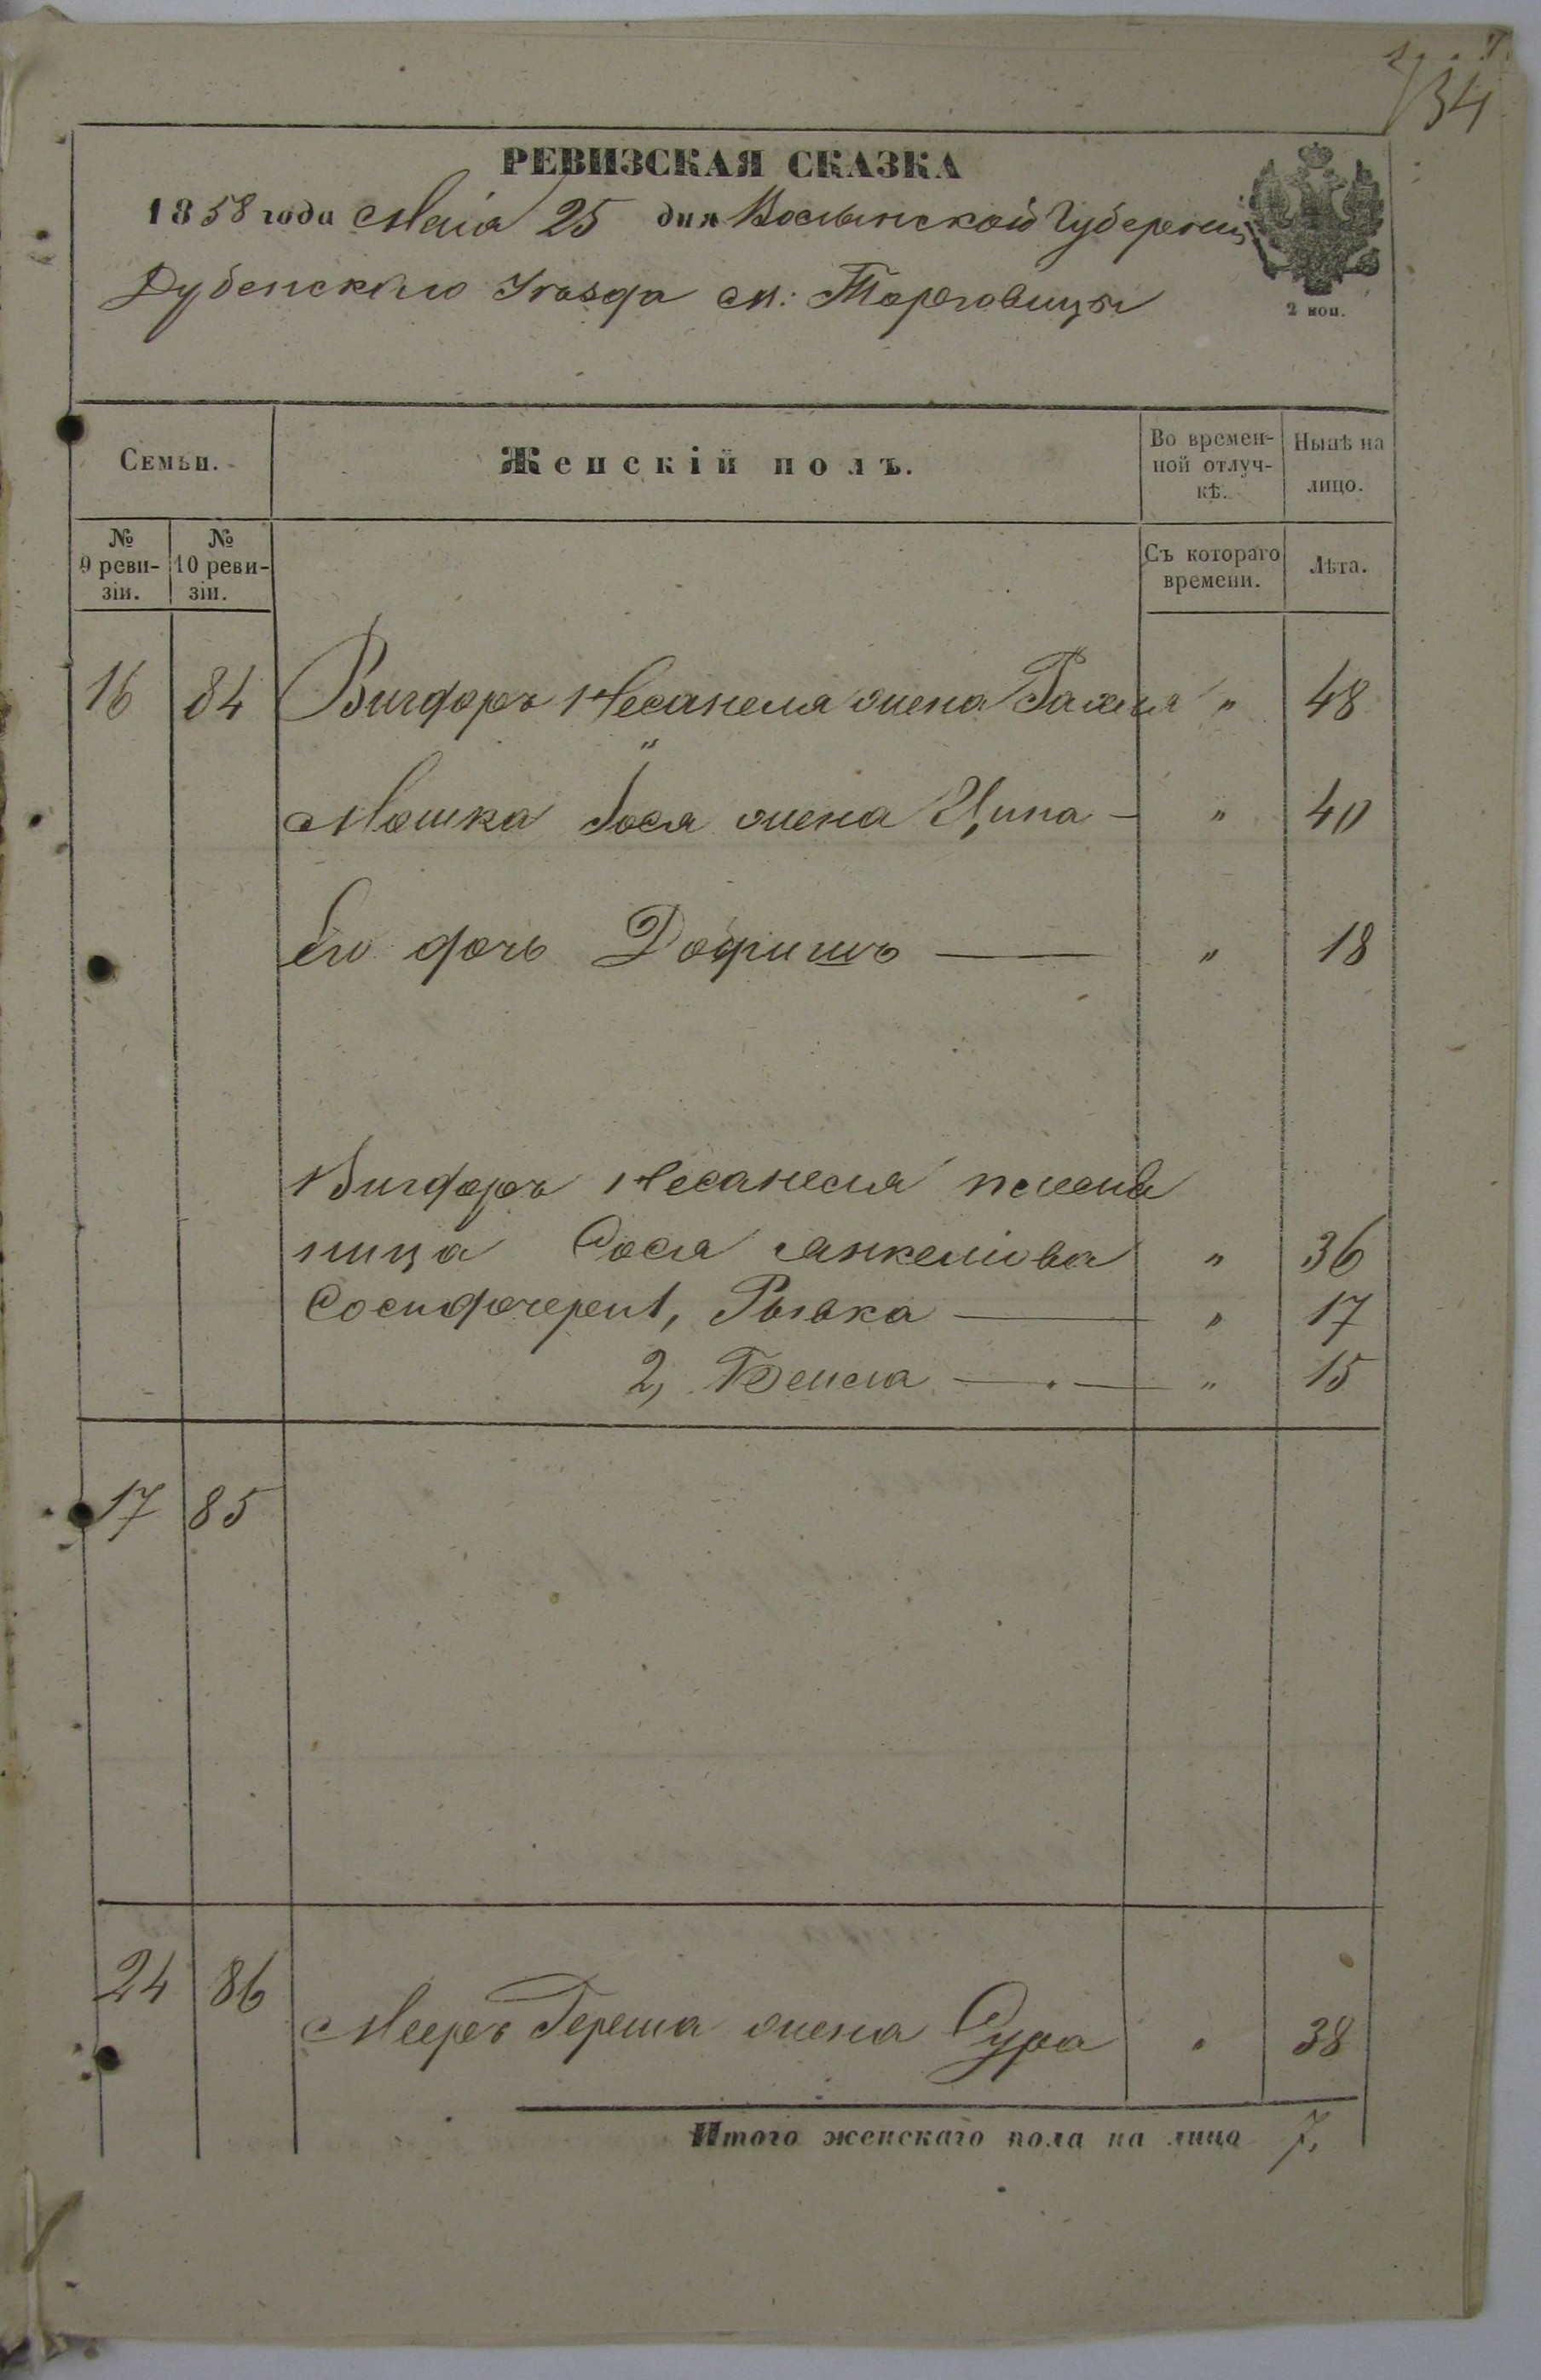 34
РЕВИЗСКАЯ СКАЗКА
1858 года Маія 25 дня Волынской Губерніи
Дубенскаго Уѣзда м: Торговицы
2 коп.
Семьи.
Женскій полъ.
Во времен-
ной отлуч-
кѣ.
Нынѣ на
лицо.
№
9 реви-
зіи.
№
10 реви-
зіи.
Съ котораго
времени.
Лѣта.
16 84 Вигдоръ Несанеля жена Рахля " 48
"
Мошка Іося жена Ципа — " 40
Его дочь Добришъ — " 18
Вигдоръ Несанеля племен
ница Сося Янкелиова " 36
Соси дочери 1, Рывка — " 17
2, Бейла — " 15
17 85
24 86
Мееръ Герша жена Сура " 38
Итого женскаго пола на лицо 7.